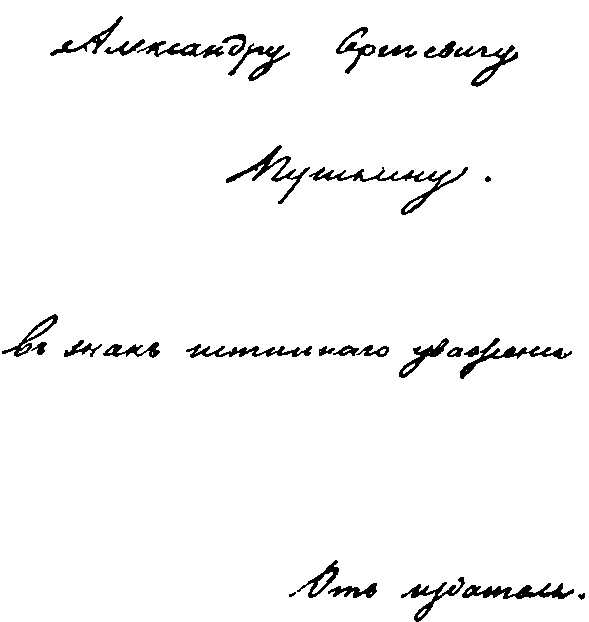 Александру Сергеевичу
Пушкину.
въ знакъ истиннаго уваженiя
Отъ издателя.